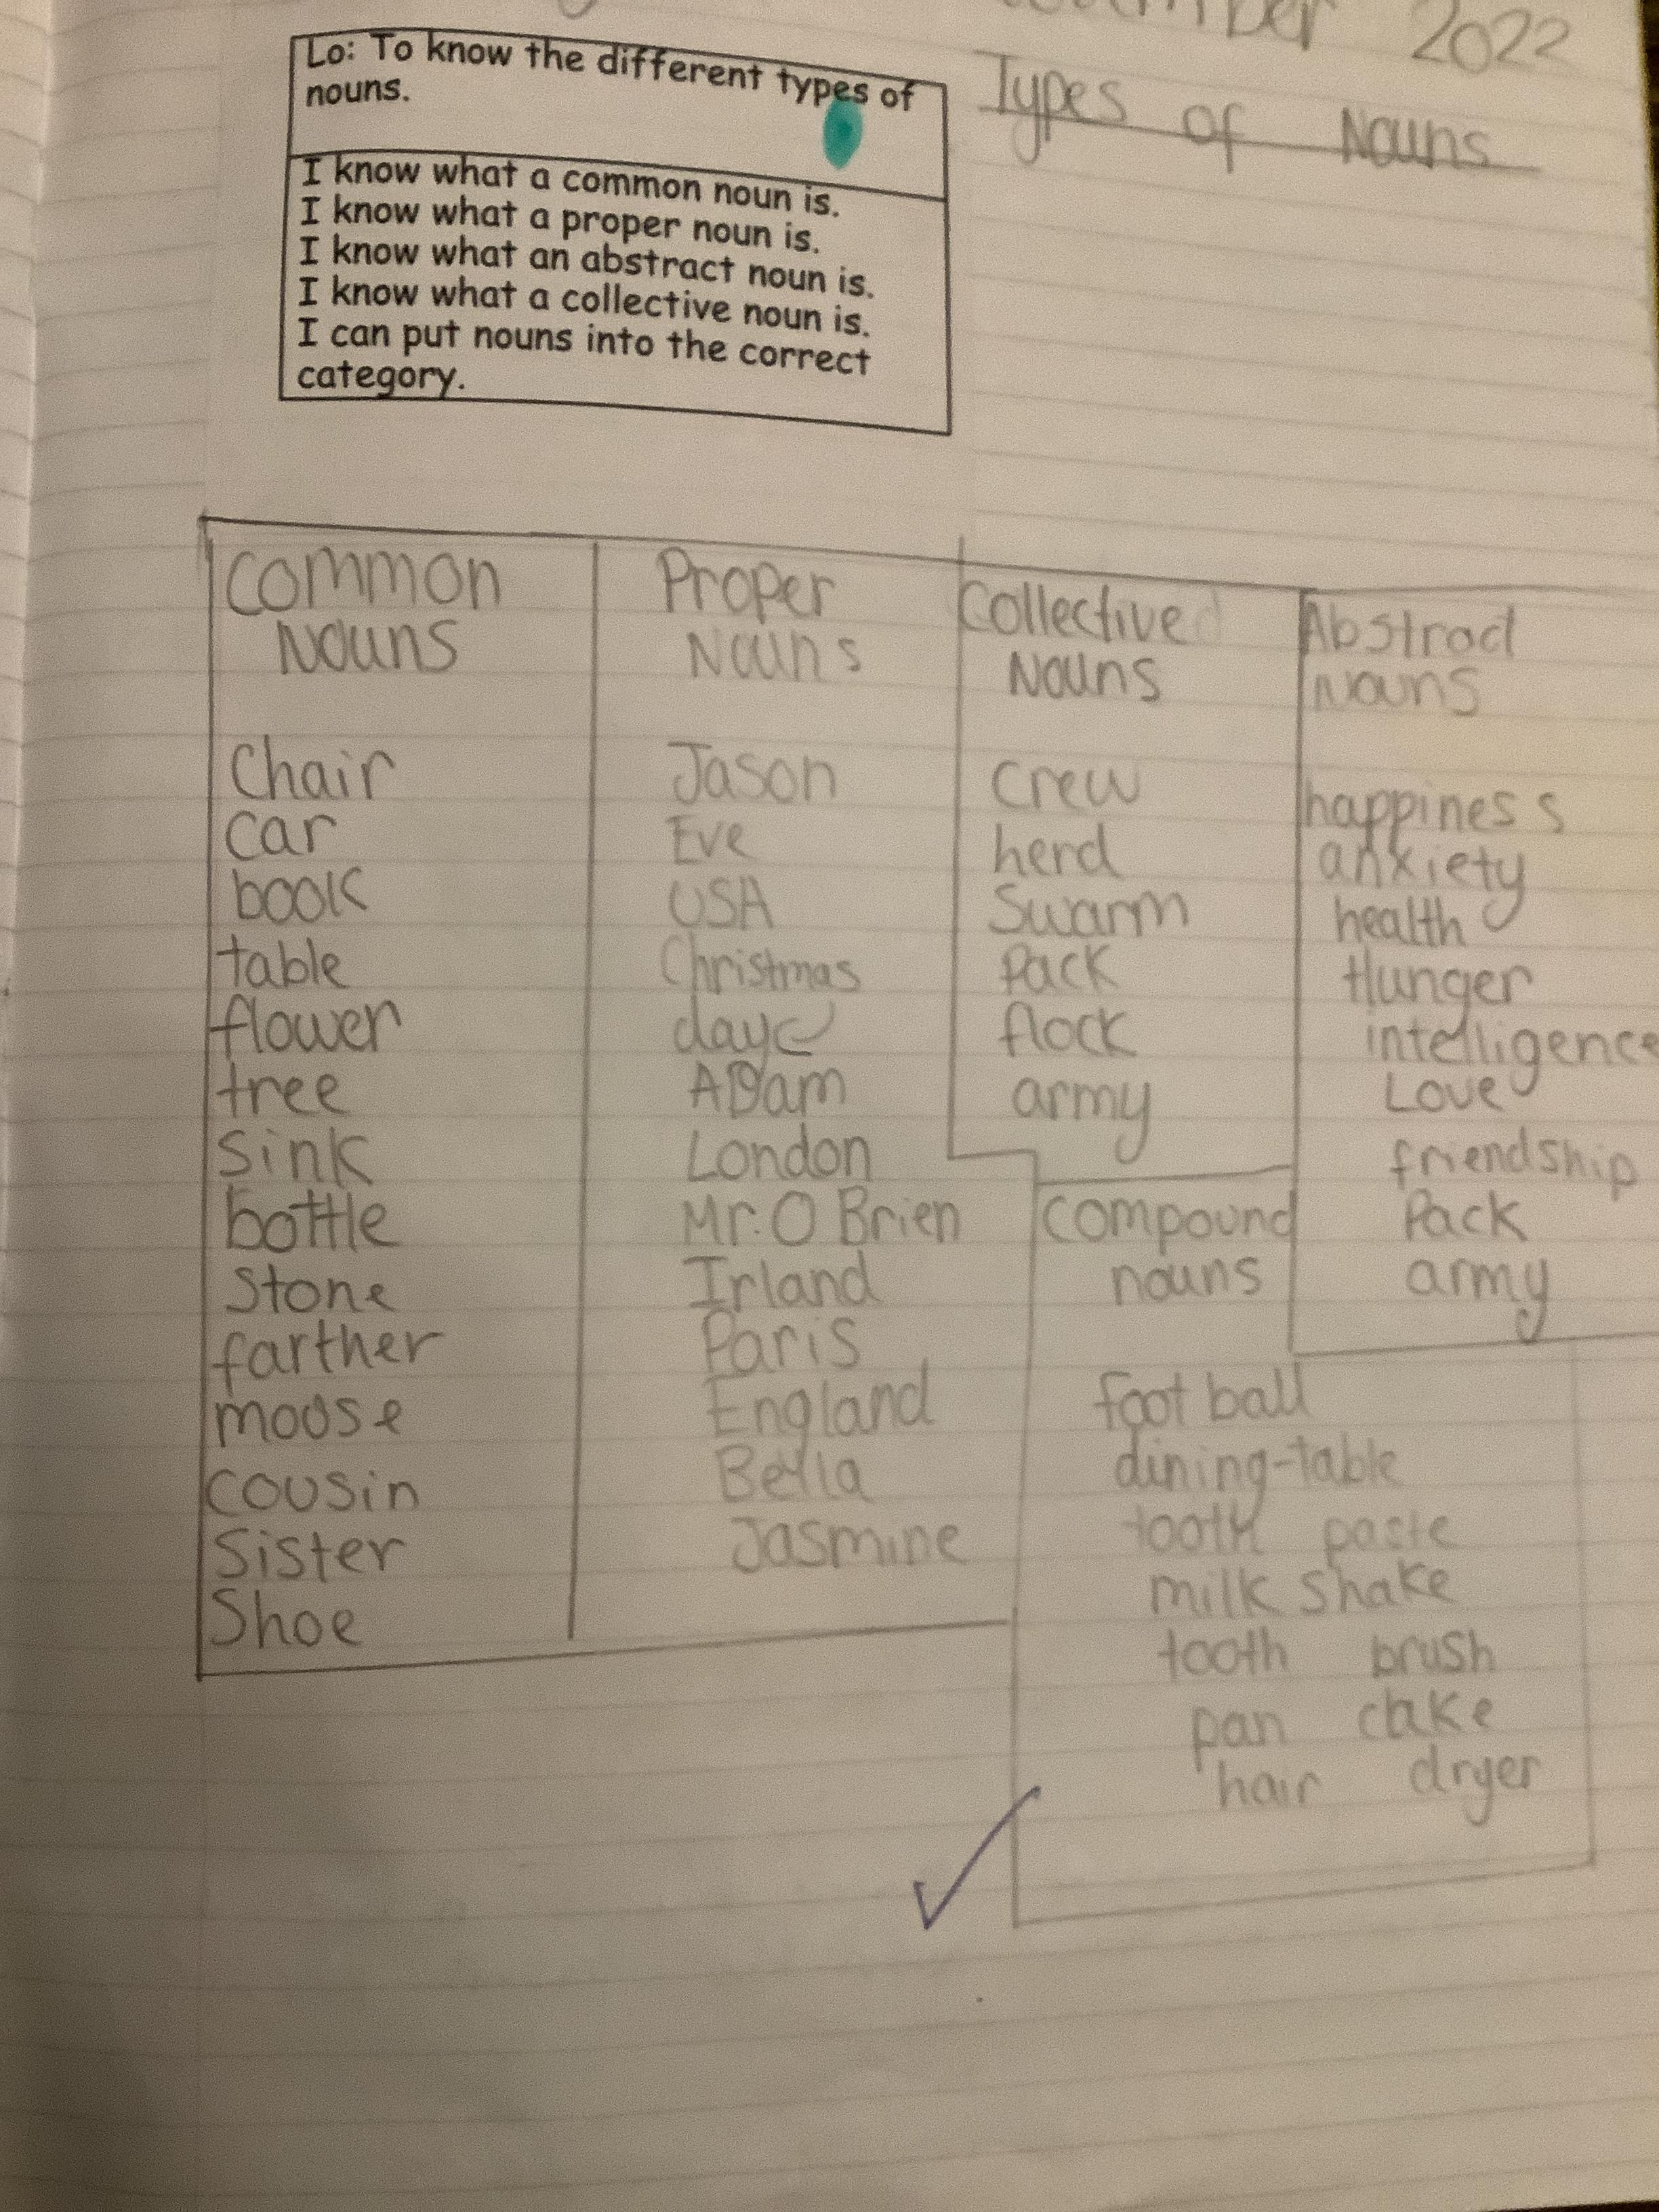 2022
Types of Nouns
Lo: To know the different types of
nouns.
I know what a common noun is.
I know what a proper noun is.
I know what an abstract noun is.
I know what a collective noun is.
I can put nouns into the correct
category.
Common
Nouns
Chair
Car
book
table
flower
tree
Sink
bottle
Stone
farther
mouse
cousin
Sister
Shoe
Proper
Nouns
Jason
Eve
USA
Christmas
day
ADam
London
Mr. O Brien
Irland
Paris
England
Bella
Jasmine
Collective
Nouns
Crew
herd
Swarm
Pack
flock
army
Compound
nouns
foot ball
dining-table
tooth paste
milk shake
tooth brush
pan cake
hair dryer
Abstract
Nouns
happiness
anxiety
health
Hunger
intelligence
Love
friendship
Pack
army